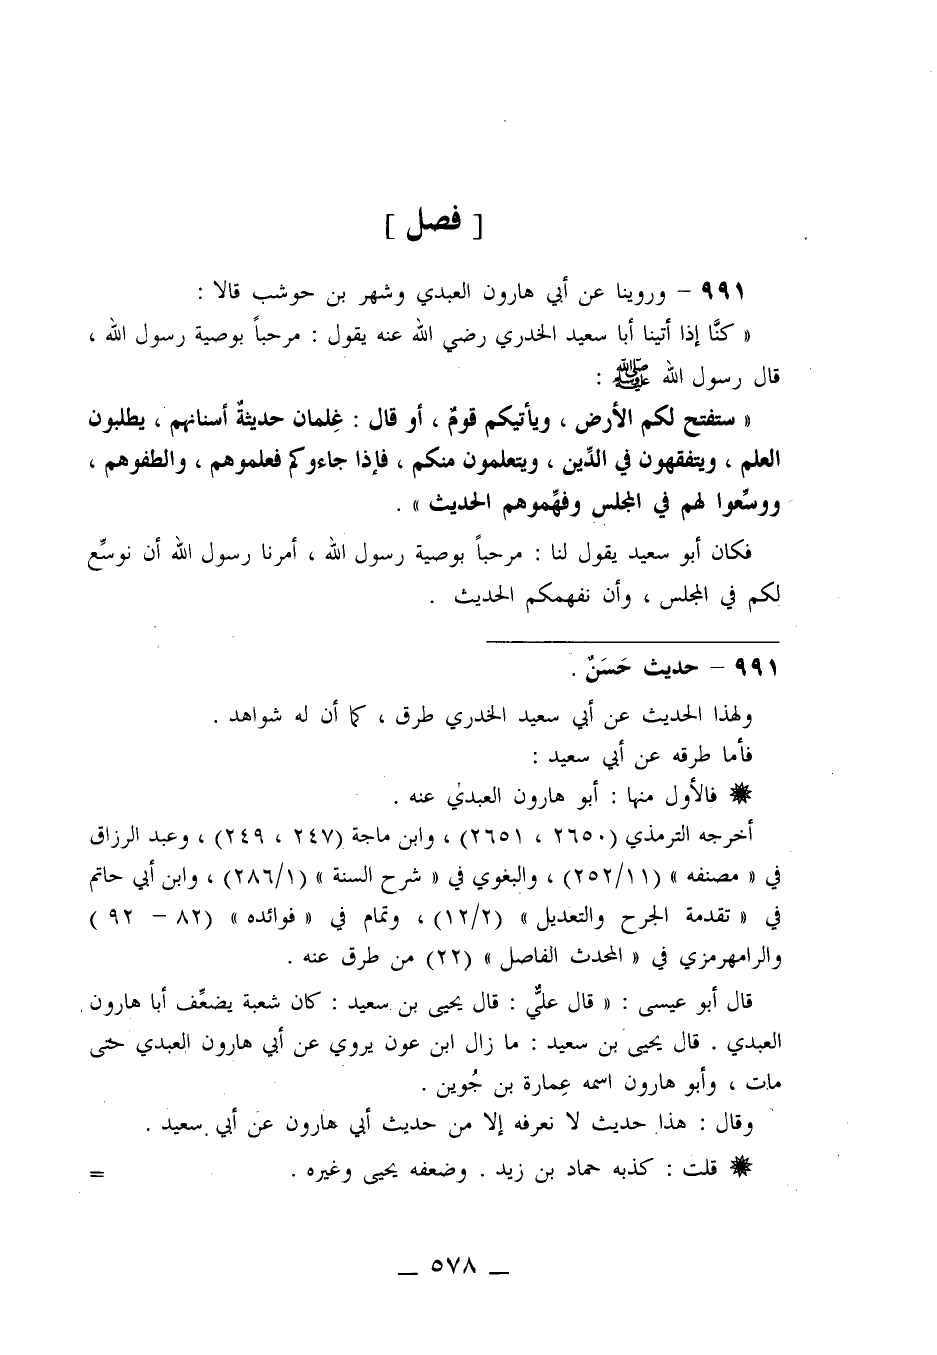 [ فصل ]
٩٩١ – وروينا عن أبي هارون العبدي وشهر بن حوشب قالا :
« كنَّا إذا أتينا أبا سعيد الخدري رضي الله عنه يقول : مرحباً بوصية رسول الله ،
قال رسول الله ﷺ :
« ستفتح لكم الأرض ، ويأتيكم قومٌ ، أو قال : غِلمان حديثةٌ أسنانهم ، يطلبون
العلم ، ويتفقهون في الدِّين ، ويتعلمون منكم ، فإذا جاءوكم فعلموهم ، والطفوهم ،
ووسِّعوا لهم في المجلس وفهِّموهم الحديث » .
فكان أبو سعيد يقول لنا : مرحباً بوصية رسول الله ، أمرنا رسول الله أن نوسِّع
لكم في المجلس ، وأن نفهمكم الحديث .
٩٩١ – حديث حَسَنٌ .
ولهذا الحديث عن أبي سعيد الخدري طرق ، كما أن له شواهد .
فأما طرقه عن أبي سعيد :
✹ فالأول منها : أبو هارون العبدي عنه .
أخرجه الترمذي (٢٦٥٠ ، ٢٦٥١) ، وابن ماجة (٢٤٧ ، ٢٤٩) ، وعبد الرزاق
في « مصنفه » (٢٥٢/١١) ، والبغوي في « شرح السنة » (٢٨٦/١) ، وابن أبي حاتم
في « تقدمة الجرح والتعديل » (١٢/٢) ، وتمام في « فوائده » (٨٢ – ٩٢ )
والرامهرمزي في « المحدث الفاصل » (٢٢) من طرق عنه .
قال أبو عيسى : « قال عليٌّ : قال يحيى بن سعيد : كان شعبة يضعِّف أبا هارون
العبدي . قال يحيى بن سعيد : ما زال ابن عون يروي عن أبي هارون العبدي حتى
مات ، وأبو هارون اسمه عِمارة بن جُوين .
وقال : هذا حديث لا نعرفه إلا من حديث أبي هارون عن أبي سعيد .
✹ قلت : كذبه حماد بن زيد . وضعفه يحيى وغيره . =
— ٥٧٨ —